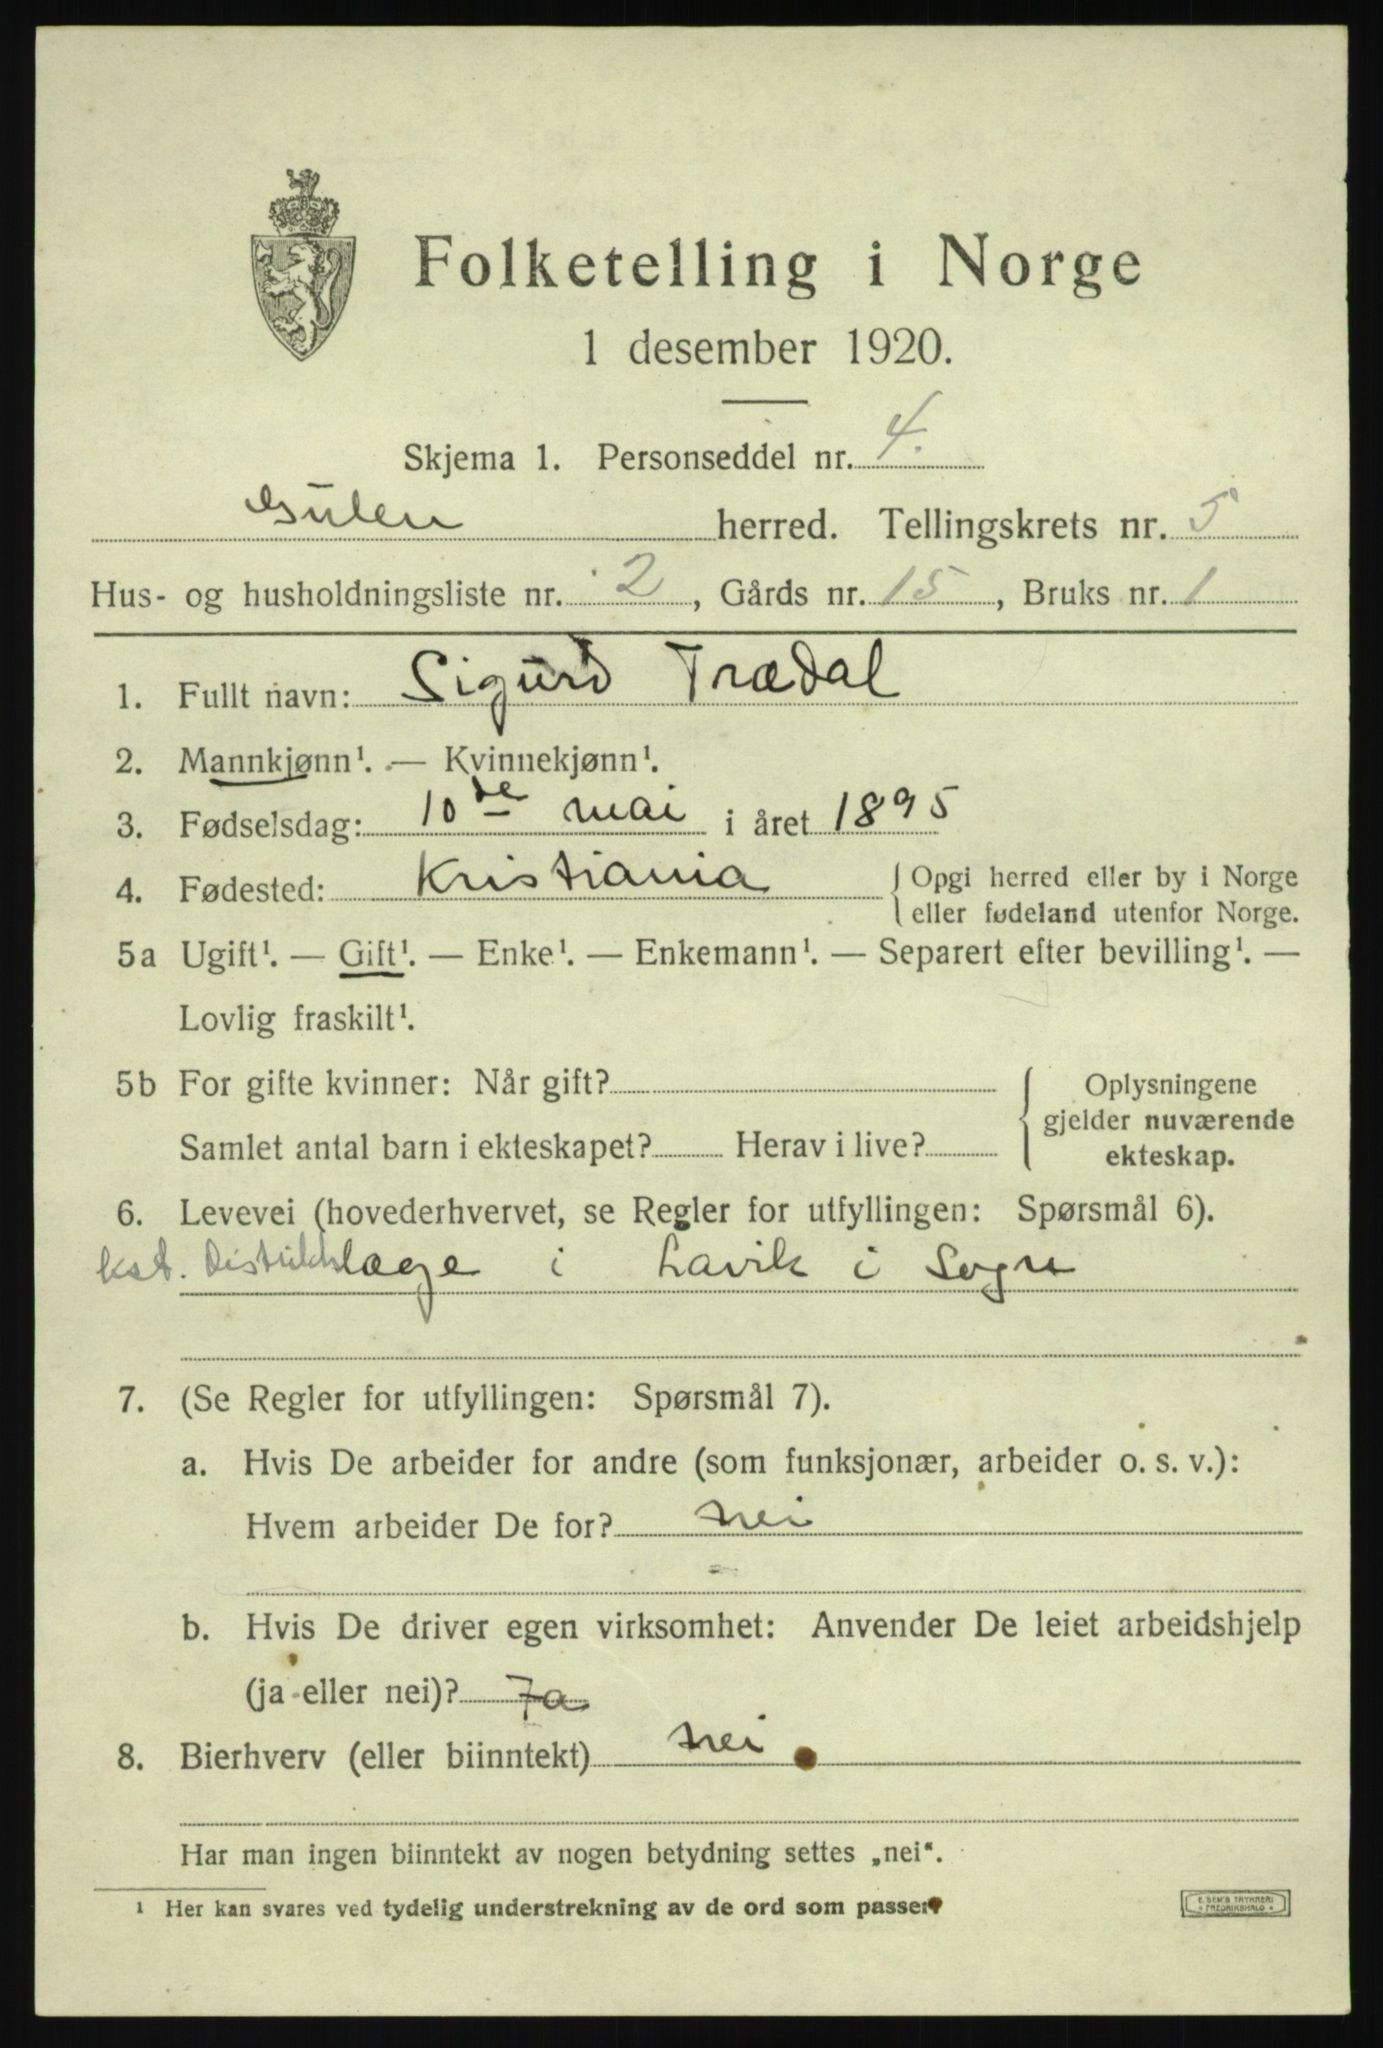 Folketelling i Norge
1 desember 1920.
Skjema 1. Personseddel nr. 4.
Gulen herred. Tellingskrets nr. 5
Hus- og husholdningsliste nr. 2, Gårds nr. 15, Bruks nr. 1
1. Fullt navn: Sigurd Trædal
2. Mannkjønn¹. — Kvinnekjønn¹.
3. Fødselsdag: 10de mai i året 1895
4. Fødested: Kristiania { Opgi herred eller by i Norge
eller fødeland utenfor Norge.
5a Ugift¹. — Gift¹. — Enke¹. — Enkemann¹. — Separert efter bevilling¹. —
Lovlig fraskilt¹.
5b For gifte kvinner: Når gift? { Oplysningene
gjelder nuværende
Samlet antal barn i ekteskapet? Herav i live? ekteskap.
6. Levevei (hovederhvervet, se Regler for utfyllingen: Spørsmål 6).
kst. Distriktslæge i Lavik i Sogn
7. (Se Regler for utfyllingen: Spørsmål 7).
a. Hvis De arbeider for andre (som funksjonær, arbeider o. s. v.):
Hvem arbeider De for? nei
b. Hvis De driver egen virksomhet: Anvender De leiet arbeidshjelp
(ja eller nei)? Ja
8. Bierhverv (eller biinntekt) nei
Har man ingen biinntekt av nogen betydning settes „nei“.
¹ Her kan svares ved tydelig understrekning av de ord som passer.
E. SEM'S TRYKKERI
FREDRIKSHALD